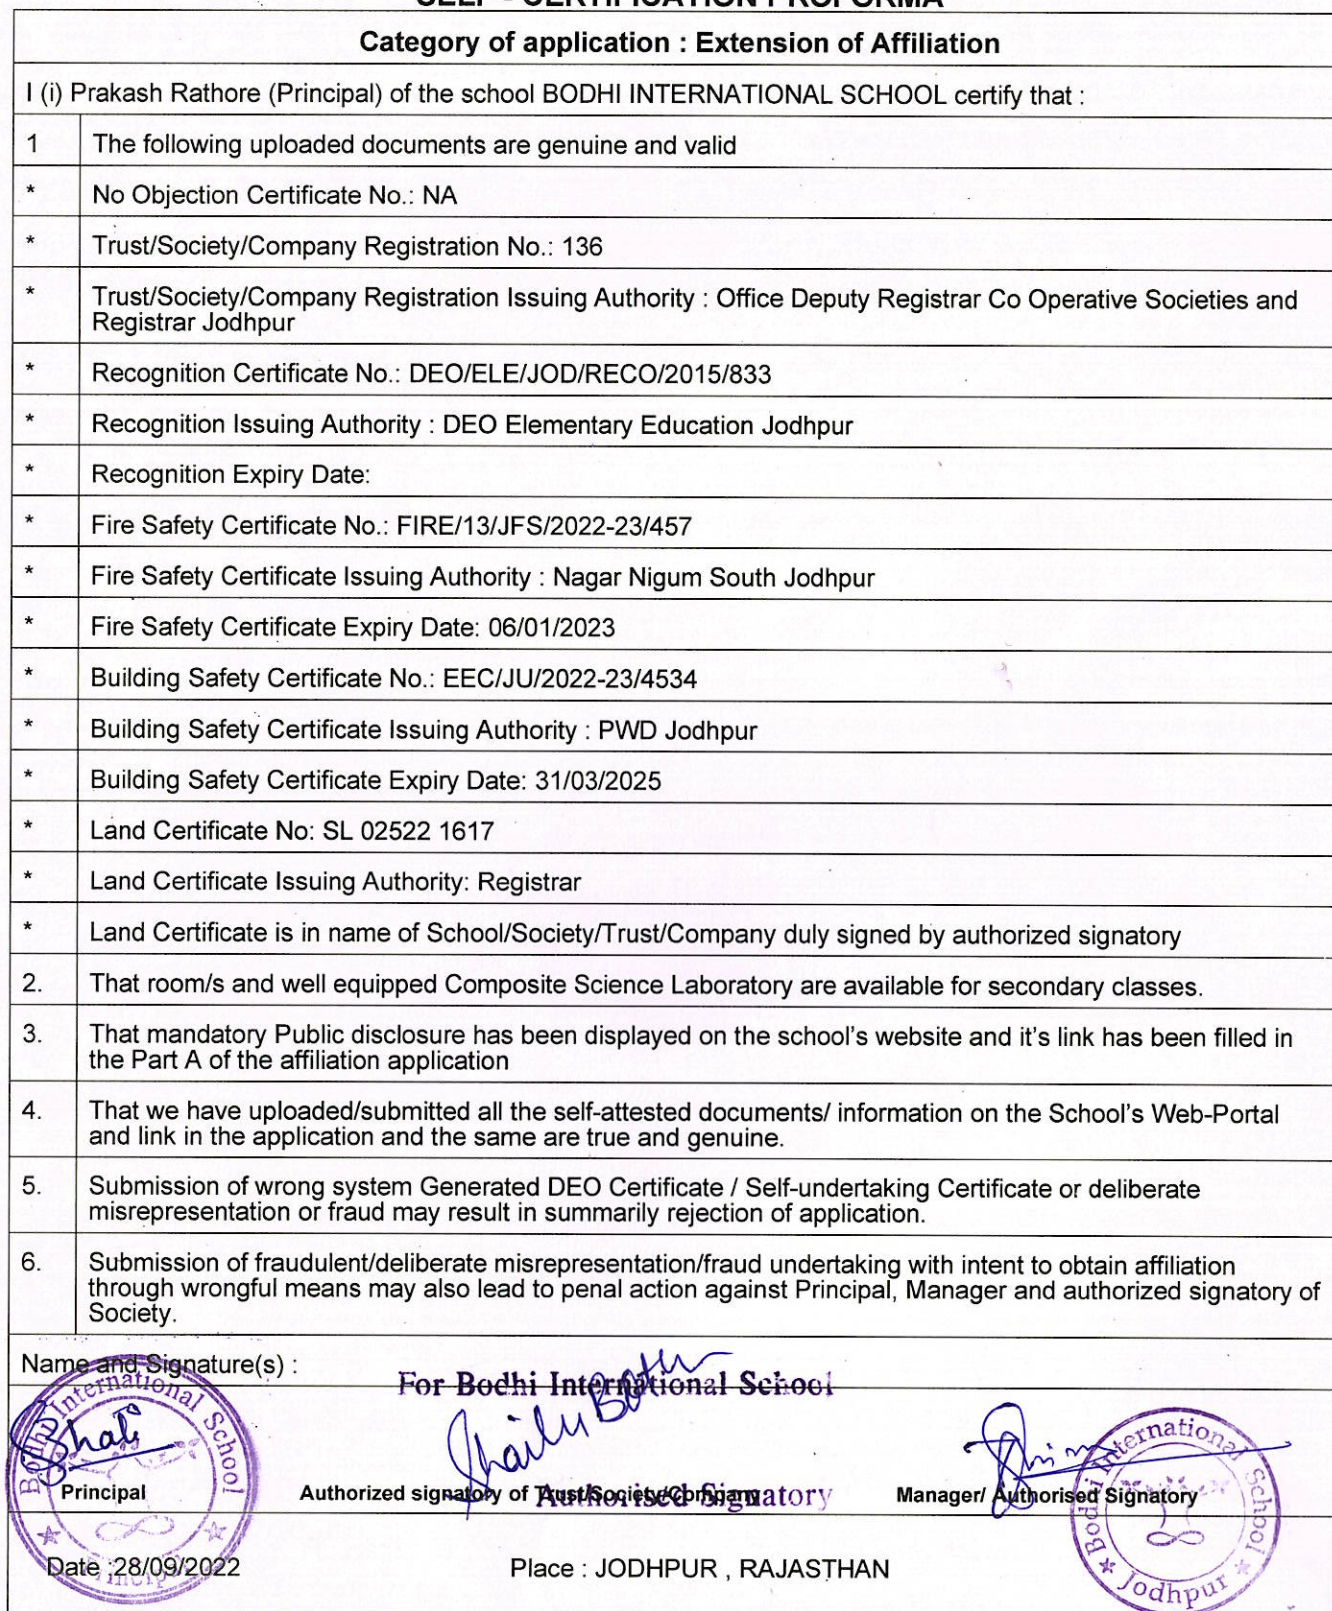 SELF - CERTIFICATION PROFORMA
Category of application : Extension of Affiliation
I (i) Prakash Rathore (Principal) of the school BODHI INTERNATIONAL SCHOOL certify that :
1 The following uploaded documents are genuine and valid
* No Objection Certificate No.: NA
* Trust/Society/Company Registration No.: 136
* Trust/Society/Company Registration Issuing Authority : Office Deputy Registrar Co Operative Societies and
Registrar Jodhpur
* Recognition Certificate No.: DEO/ELE/JOD/RECO/2015/833
* Recognition Issuing Authority : DEO Elementary Education Jodhpur
* Recognition Expiry Date:
* Fire Safety Certificate No.: FIRE/13/JFS/2022-23/457
* Fire Safety Certificate Issuing Authority : Nagar Nigum South Jodhpur
* Fire Safety Certificate Expiry Date: 06/01/2023
* Building Safety Certificate No.: EEC/JU/2022-23/4534
* Building Safety Certificate Issuing Authority : PWD Jodhpur
* Building Safety Certificate Expiry Date: 31/03/2025
* Land Certificate No: SL 02522 1617
* Land Certificate Issuing Authority: Registrar
* Land Certificate is in name of School/Society/Trust/Company duly signed by authorized signatory
2. That room/s and well equipped Composite Science Laboratory are available for secondary classes.
3. That mandatory Public disclosure has been displayed on the school's website and it's link has been filled in
the Part A of the affiliation application
4. That we have uploaded/submitted all the self-attested documents/ information on the School's Web-Portal
and link in the application and the same are true and genuine.
5. Submission of wrong system Generated DEO Certificate / Self-undertaking Certificate or deliberate
misrepresentation or fraud may result in summarily rejection of application.
6. Submission of fraudulent/deliberate misrepresentation/fraud undertaking with intent to obtain affiliation
through wrongful means may also lead to penal action against Principal, Manager and authorized signatory of
Society.
Name and Signature(s) :
For Bodhi International School
Bodhi International School
Principal
Bodhi International School
Jodhpur
Principal
Authorized signatory of Trust/Society/Company
Authorised Signatory
Manager/ Authorised Signatory
Date :28/09/2022 Place : JODHPUR , RAJASTHAN